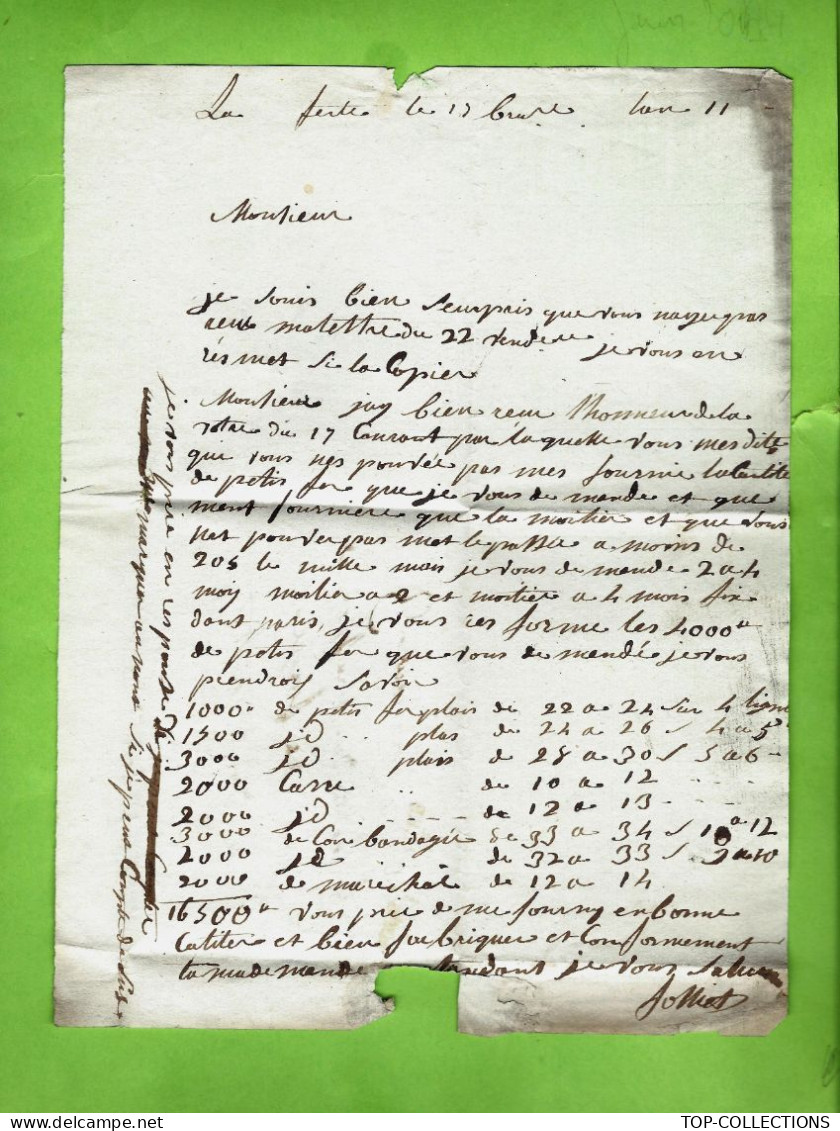 La ferte le 17 brure lan 11
Monsieur
je souis bien seurpris que vous nayer pas
reeu malettre du 22 vendre je vous en
resmet si la Copier
Monsieur jay bien reeu lhonneur de la
votre du 17 Courant par laquelle vous mes dite
que vous nes pouvée pas mes fournir la Cantite
de petis fer que je vous demande et que
ment fournière que la moitier et que vous
net pouver pas met le passée a moins de
205 le mille mais je vous demande 2 a 4
moy moitier a 2 et moitier a 4 mois fix
dant paris, je vous ies forme les 4000
de petis fer que vous demandé je vous
prendrois savoir
1000 de petis fer plais de 22 a 24 sur 4 ligne
1500 jd plas de 24 a 26 s 4 a 5
3000 jd plais de 28 a 30 s 5 a 6
2000 Carre de 10 a 12
2000 jd de 12 a 13
3000 de Cou bandagie de 33 a 34 s 10 a 12
2000 jd de 32 a 33 s 9 a 10
2000 de marechal de 12 a 14
16500 vous prie de me fourny en bonne
Caliter et bien fabriquer et Conformement
ta mademande atandant je vous salue
Jolliot
je vous prie en response de
marquer au nene si je peux Compte de sus
TOP-COLLECTIONS